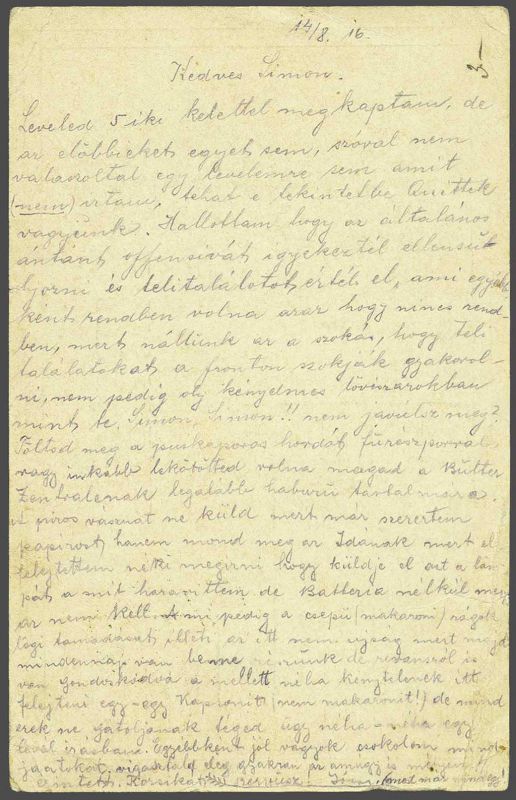 14/8. 16.
Kedves Simon.
Leveled 5 iki kelettel megkaptam, de
az előbbieket egyet sem, szóval nem
válaszoltál egy levelemre sem amit
(nem) irtam, tehát e tekintetbe Quittek
vagyunk. Hallottam hogy az általános
ántánt offensivát igyekeztél ellensúl
lyozni és telitalálatot értél el, ami egyéb
ként rendben volna azaz hogy nincs rend-
ben, mert nálunk az a szokás, hogy teli
találatokat a fronton szokják gyakorol-
ni, nem pedig oly kényelmes lövészárokban
mint te. Simon, Simon!! nem javulsz meg?
Töltsd meg a puskaporos hordót fűrészporral
vagy inkább lekötötted volna magad a Butter
Zentralénak legalább háború tartalmára.
piros vásznat ne küld mert már szereztem
papirost, hanem mond meg az Idának mert el
felejtettem néki megirni hogy küldje el azt a lám
pát a mit hazavittem, de Batteria nélkül mert
az nem kell. A mi pedig a csepü (makaroni) rágók
légi támadását illeti az itt nem ujság mert majd
mindennap van benne részünk de revansról is
van gondoskodva a mellett néha kénytelenek itt
felejteni egy-egy Kapronit (nem makaronit!) de mind
ezek ne gátoljanak téged úgy néha-néha egy
levél irásban. Egyébként jól vagyok csókolom mind
elég gyakran